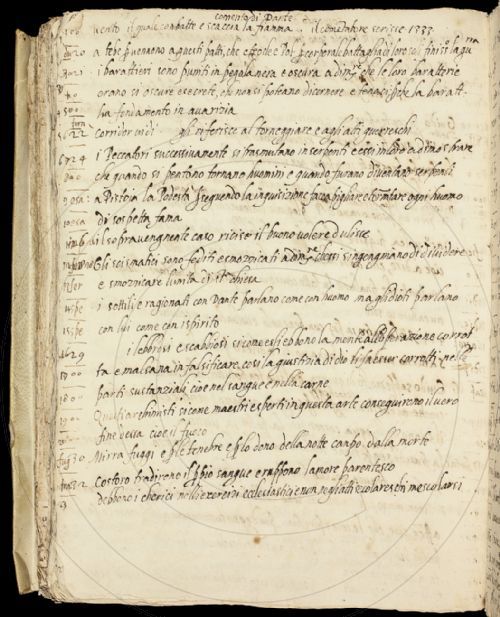 comento di Dante
vento il quale combatte e scaccia la fiamma il comentatore scrisse 1333
a tebe pervennero a questi patti, che Eteocle e Pol per corporale battaglia di loro soli finisse la guerra
i barattieri sono puniti in pegola nera e oscura a dimostrare che le loro baratterie
erano si oscure e secrete, che non si poteano dicernere e tenaci perche la baratt.
ha fondamento in avarizia
Corridor vidi gli riferisce al torneggiare e agli atti guerreschi
i Peccatori successivamente si trasmutano in serpenti e essi in loro a dimostrare
che quando si pentono tornano huomini e quando furano diventano serpenti
a Pistoia la Podestà seguendo la inquisizione facea pigliare e tormentare ogni huomo
di sospetta fama
il sopravegnente caso ricise il buono volere d'ulisse
Gli scismatici sono fediti e smozzicati a dimostrare ch'essi s'ingegnano di dividere
e smozzicare l'unità di sta chiesa
i sottili e ragionati con Dante parlano come con huomo ma gl'idioti parlano
con lui come con ispirito
i lebbrosi e scabbiosi sicome egli ebbono la mente alla operazione corrot
ta e malsana in falsificare, cosi la giustizia di dio fa esser corrotti nelle
parti sustanziali cioe nel sangue e nella carne
Questi archimisti sicome maestri esperti in questa arte conseguirono il vero
fine dessa cioe il fuoco
Mirra fuggi e per le tenebre e per lo dono della notte campo dalla morte
Costoro tradirono il proprio sangue e ruppono l'amore parentesco
debbono i cherici nelli exercizi ecclesiastici e non negli atti secolareschi mescolarsi